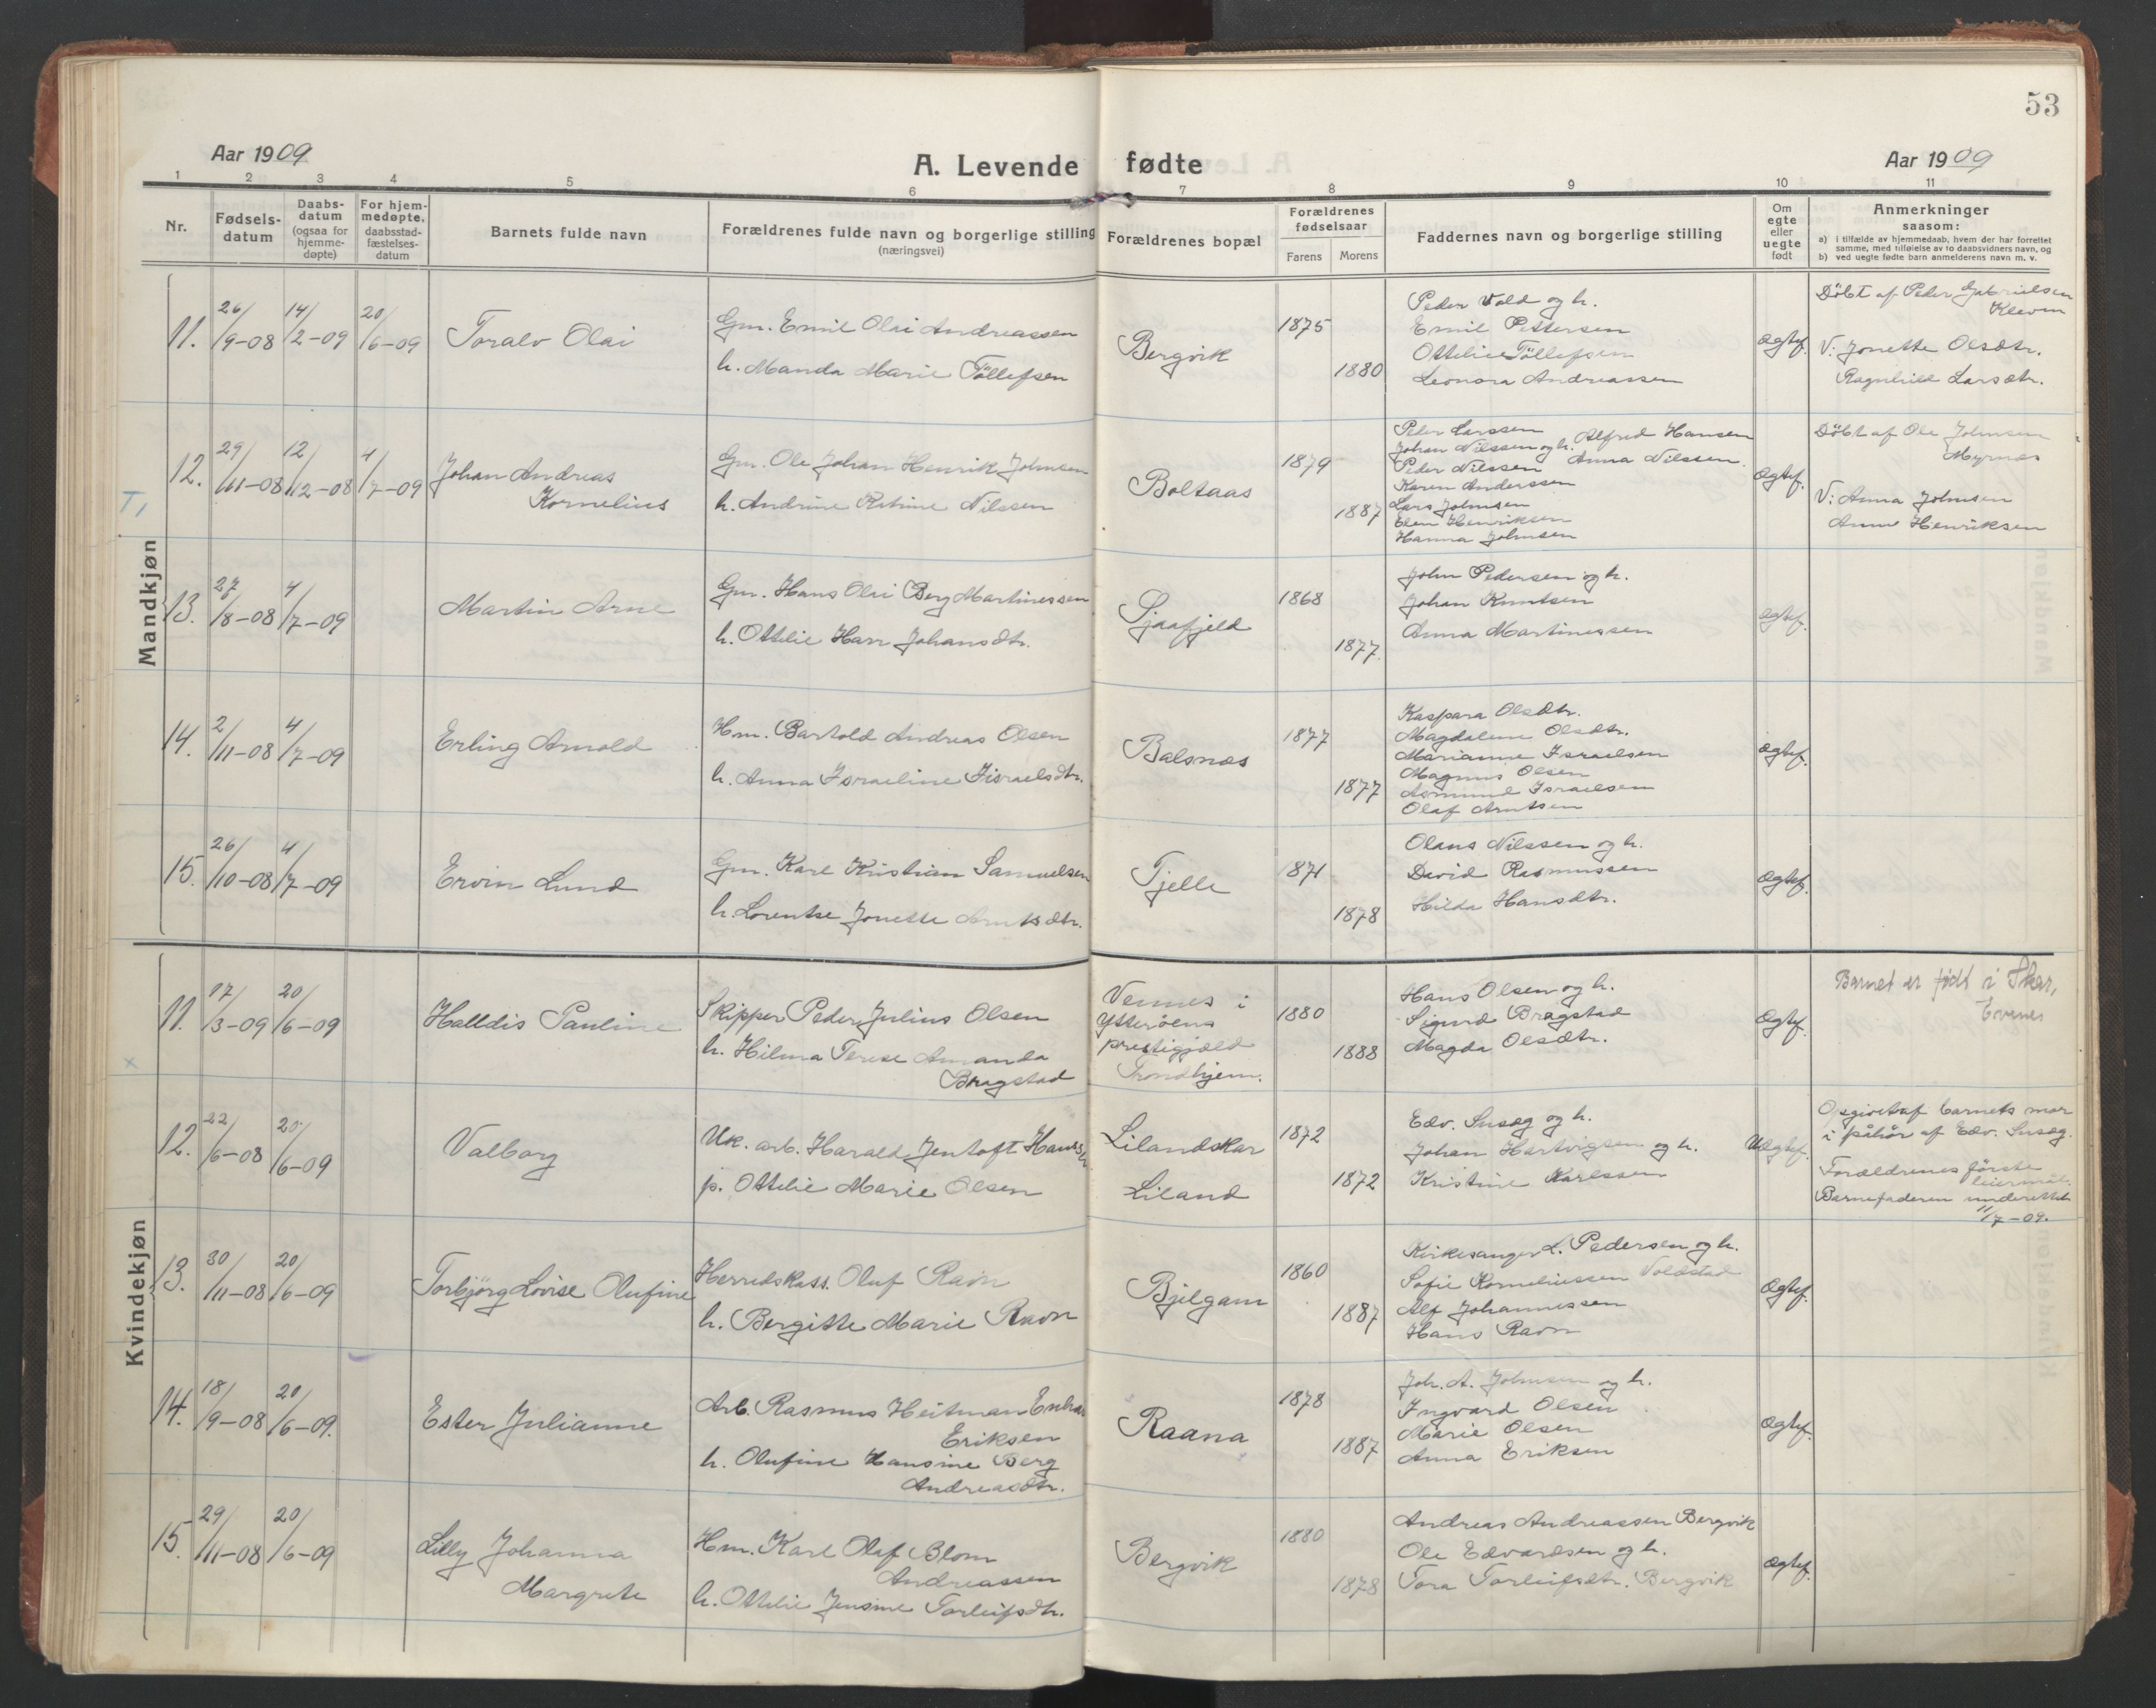 53
Aar 1909
A. Levende fødte
Aar 1909
1 2 3 4 5 6 7 8 9 10 11
Nr.
Fødsels-
datum
Daabs-
datum
(ogsaa for
hjemme-
døpte)
For hjem-
medøpte,
daabsstad-
fæstelses-
datum
Barnets fulde navn
Forældrenes fulde navn og borgerlige stilling
(næringsvei)
Forældrenes bopæl
Forældrenes
fødselsaar
Farens Morens
Faddernes navn og borgerlige stilling
Om
egte
eller
uegte
født
Anmerkninger
saasom:
a) i tilfælde av hjemmedaab, hvem der har forrettet
samme, med tilføielse av to daabsvidners navn, og
b) ved uegte fødte barn anmelderens navn m. v.
Mandkjøn
11. 26/9-08 14/2-09 20/6-09
Toralv Olai
Gm. Emil Olai Andreassen
h. Manda Marie Töllefsen
Bergvik
1875
1880
Peder Vold og h.
Emil Pettersen
Ottilie Töllefsen
Leonora Andreassen
Ægtef.
Döbt af Peder Gabrielsen
Kleven
V: Jonette Olsdtr.
Ragnhild Larsdtr.
T,
12. 29/11-08 12/12-08 4/7-09
Johan Andreas
Kornelius
Gm. Ole Johan Henrik Johnsen
h. Andrine Katrine Nilssen
Boltaas
1879
1887
Peder Larssen
Johan Nilssen og h. Alfred Hansen
Peder Nilssen Anna Nilssen.
Karen Anderssen
Lars Johnsen
Elen Henriksen
Hanna Johnsen
Ægtef.
Döbt af Ole Johnsen
Myrnes
V: Anna Johnsen
Anne Henriksen
13. 27/8-08 4/7-09
Martin Arne
Gm. Hans Olai Berg Martinessen
h. Ottilie Harr Johansdtr.
Sjaafjeld
1868
1877.
John Pedersen og h.
Johan Knutsen
Anna Martinessen
Ægtef.
14. 2/11-08 4/7-09
Erling Arnold
Hm. Bartold Andreas Olsen
h. Anna Israeline Iisraelsdtr.
Balsnes
1877
1877
Kaspara Olsdtr.
Magdalene Olsdtr.
Marianne Israelsen
Magnus Olsen
Asmund Israelsen
Olaf Arntsen
Ægtef.
15. 26/10-08 4/7-09
Ervin Lund
Gm. Karl Kristian Samuelsen
h. Lorentse Jonette Arntsdtr.
Tjelle
1871
1878
Olaus Nilssen og h.
David Rasmussen
Hilda Hansdtr.
Ægtef.
Kvindekjøn
11. 17/3-09 20/6-09
Halldis Pauline
Skipper Peder Julius Olsen
h. Hilma Terese Amanda
Bragstad
Vennes i
Ytteröens
prestigjeld
Trondhjem.
1880
1888
Hans Olsen og h.
Sigurd Bragstad
Magda Olsdtr.
Ægtef.
Barnet er født i Skar,
Evenes
x
12. 22/6-08 20/6-09
Valborg
Uk. arb. Harald Jentoft Hansen
p. Ottilie Marie Olsen
Lilandskar
Liland
1872
1872
Edv. Susæg og h.
Johan Hartvigsen og h.
Kristine Karlssen
Uægtef.
Opgivet af barnets mor
i påhör af Edv. Susæg.
Forældrenes förste
leiermål.
Barnefaderen underrettet
11/7-09.
13. 30/11-08 20/6-09
Torbjörg Lovise Olufine
Herredskass. Oluf Ravn
h. Bergitte Marie Ravn
Bjelgam
1860
1887
Kirkesanger L. Pedersen og h.
Sofie Korneliussen Voldstad
Alf Johannessen
Hans Ravn
Ægtef.
14. 18/9-08 20/6-09.
Ester Julianne
Arb. Rasmus Heitman
Eriksen
h. Olufine Hansine Berg
Andreasdtr.
Raana
1878
1887
Joh. A. Johnsen og h.
Ingvard Olsen
Marie Olsen
Anna Eriksen
Ægtef.
15. 29/11-08 20/6-09
Lilly Johanna
Margrete
Hm. Karl Olaf Blom
Andreassen
h. Ottilie Jensine Torleifsdtr.
Bergvik
1880
1878
Andreas Andreassen Bergvik
Ole Edvardsen og h.
Tora Torleifsdtr. Bergvik
Ægtef.